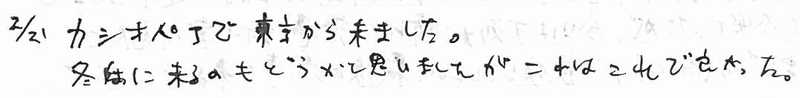 2/21 カシオペアで東京から来ました。
冬に来るのもどうかと思いましたがこれはこれで良かった。